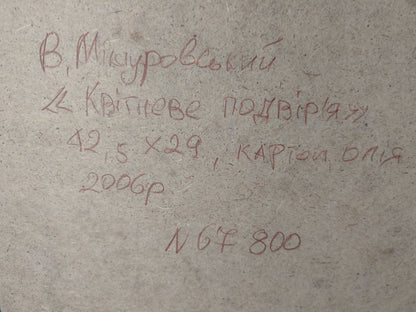 В. Мікуровський
« Квітневе подвір'я»
42,5 х 29, картон олія
2006р
N 67 800